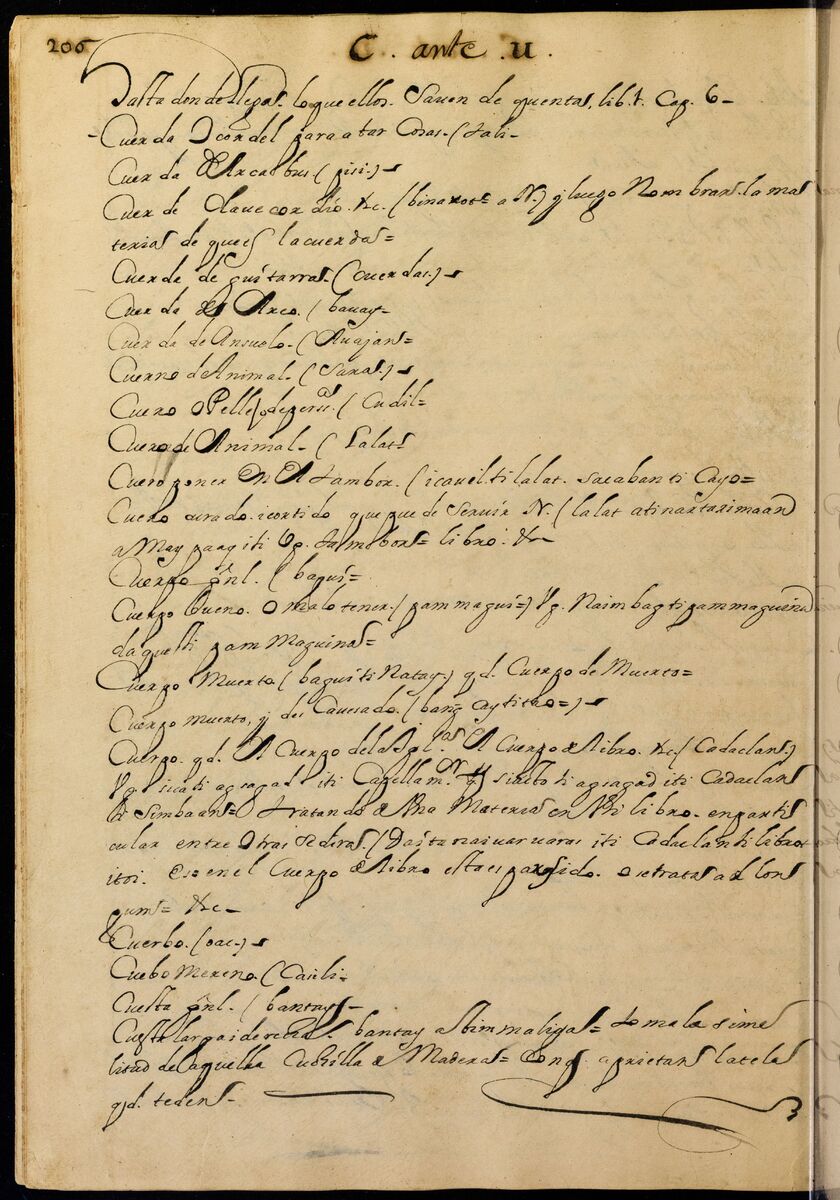 206 C. ante .U.
Hasta donde llega lo que ellos. Saven de quentas, lib. 1. Cap. 6-
Cuerda O cordel para atar Cosas. (tali-
Cuerda de Arcabus (pisi.)
Cuer de Clavecordio. &c. (binarot= a N.) y luego Nombran. la ma
teria de que es la cuerda=
Cuerda de guitarra. (cuerdas.)
Cuerda del Arco. (bavay=
Cuerda de Ansuelo. (Avajan=
Cuerno de Animal. (Sara.)
Cuero O Pellejo de persa. (Cudil=
Cuero de Animal. (Lalat
Cuero poner En El tambor. (icavil ti lalat. sacaban ti Cayo=
Cuero curado. icortido que puede Servir N. (lalat a tinartarimaan
a May parg iti Vg. tambor= libro. &c-
Cuerpo gñl. (bagui=
Cuerpo bueno. O malo tener. (pammagui=) Vg. Naimbag ti pammaguina
daques ti pam Maguina=
Cuerpo Muerto (bagui ti Natay.) qd. Cuerpo de Muerto=
Cuerpo muerto, y des Cavesado. (bang cay ti tao=)
Cuerpo. qd. El Cuerpo de la Igl.ia El Cuerpo de Libro. &c. (Cadaclan.)
Vg. sicati agsagad iti Capilla m.r y siato ti agsagad iti Cadaclan
ti Simbaan= tratando de Vna Materia en Vn libro. en parti
cular entre Otras se dira. (Dasta naivarvaras iti Cadaclan ti libro
itoi. Eso en el Cuerpo de Libro esta esparsido. O se trata ad lon
gum= &c-
Cuerbo. (oac.)
Cuebo Mereno. (Casili-
Cuesta gñl. (bantay-
Cuesta larga i derecha. bantay a timmaliga= toma la simi
litud de aquella Cuchilla de Madera= Con q. aprietan la tela
qd. tejen-